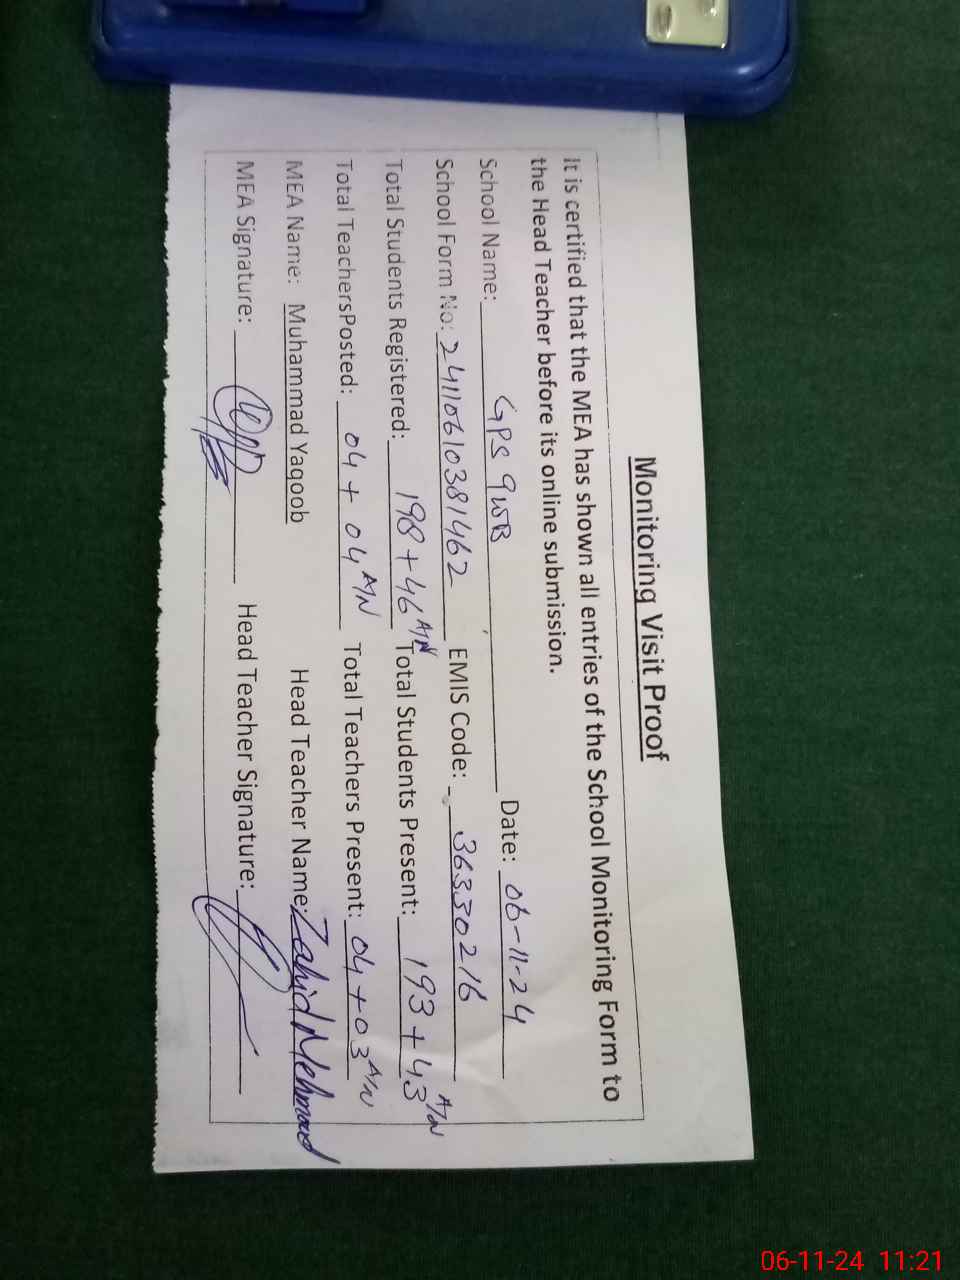 Monitoring Visit Proof
It is certified that the MEA has shown all entries of the School Monitoring Form to
the Head Teacher before its online submission.
School Name: GPS 9WB Date: 06-11-24
School Form No: 24110610381462 EMIS Code: 36330216
Total Students Registered: 198 + 46 A/N Total Students Present: 193 + 43 A/N
Total TeachersPosted: 04 + 04 A/N Total Teachers Present: 04 + 03 A/N
MEA Name: Muhammad Yaqoob Head Teacher Name: Zahid Mehmood
MEA Signature: Head Teacher Signature:
06-11-24 11:21